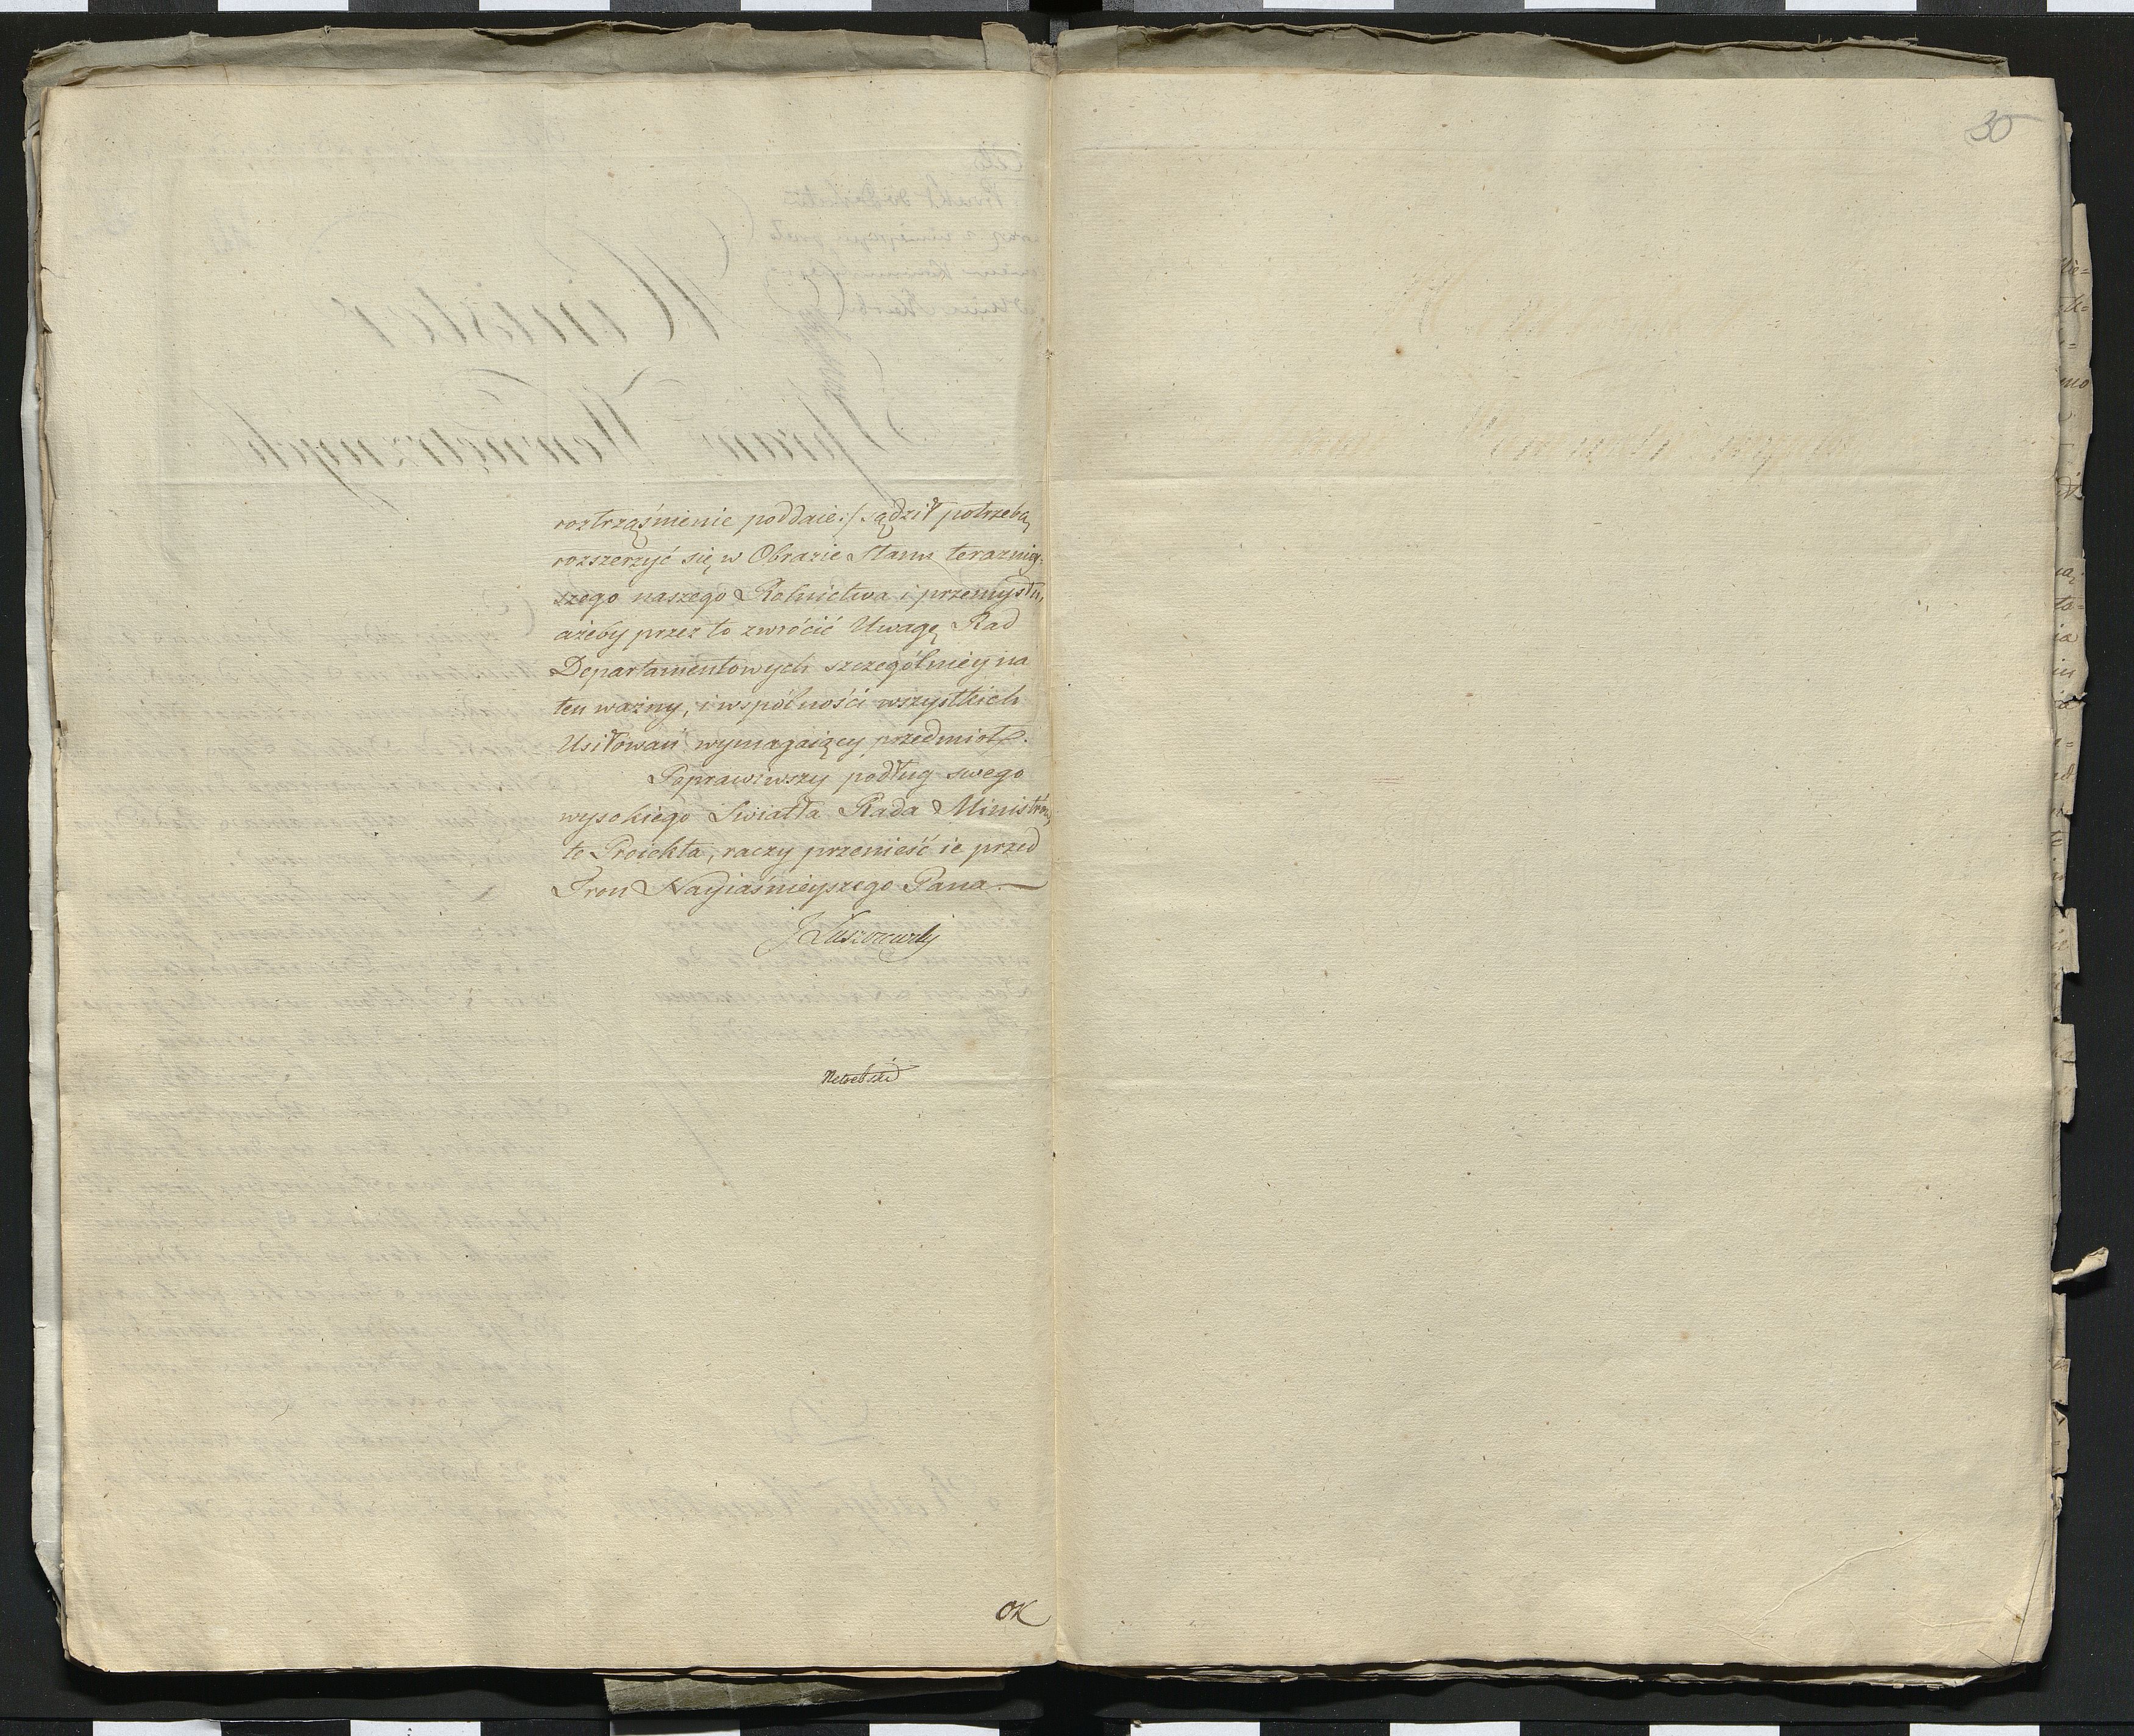 roztrząśnienie poddaie :/ sądził potrzebą
rozszerzyć się w Obrazie Stanu terazniey-
szego naszego Rolnictwa i przemysłu,
ażeby przez to zwrócić Uwagę Rad
Departamentowych szczególniey na
ten ważny, i wspólności wszystkich
Usiłowań wymagaiący przedmiot.
Poprawiwszy podług swego
wysokiego Swiatła Rada Ministrów
te Proiekta, raczy przenieść ie przed
Tron Nayiaśnieyszego Pana. —
J Łuszczewski
OK
30